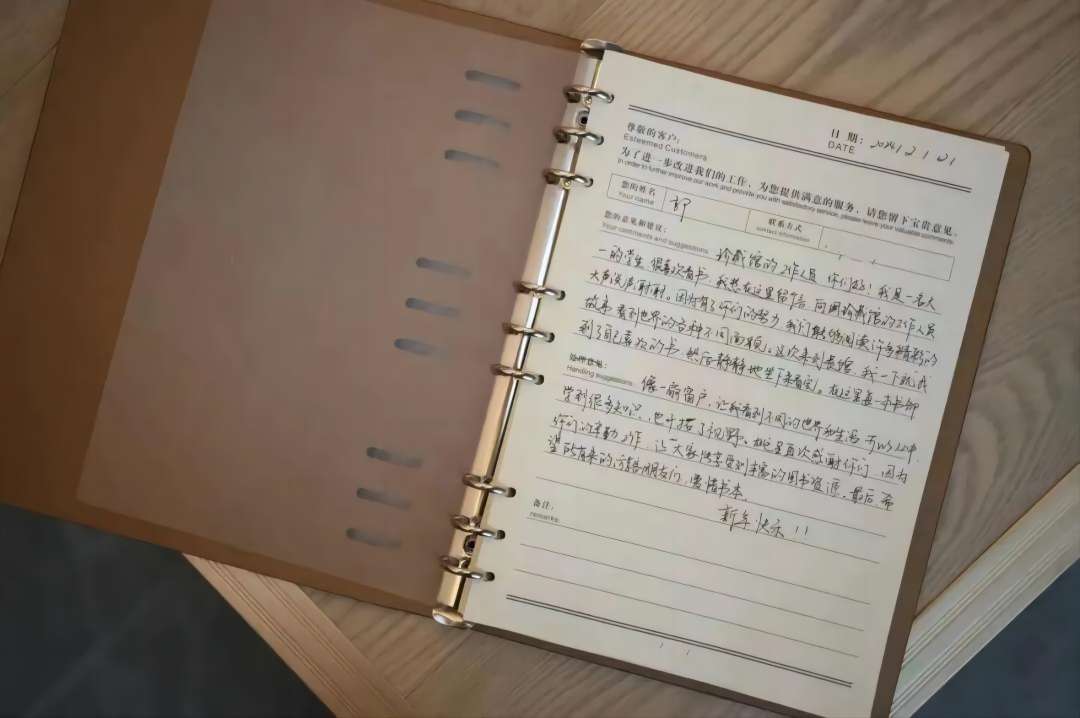 日 期： 2024 12 1 21
DATE
尊敬的客户：
Esteemed Customers
为了进一步改进我们的工作，为您提供满意的服务，请您留下宝贵意见。
In order to further improve our work and provide you with satisfactory service, please leave your valuable comments.
您的姓名
Your name
联系方式
contact information
您的意见和建议：
Your comments and suggestions
珍藏馆的工作人员 你们好！我是一名大
一的学生 很喜欢看书 我想在这里留言 向图珍藏馆的工作人员
大声说声谢谢。因为有了你们的努力 我们能够阅读许多精彩的
故事 看到世界的各种不同面貌。这次来到长馆，我一下就找
到了自己喜欢的书 然后静静地坐下来看完。在这里每一本书都
处理意见：
Handling suggestions
像一扇窗户，让我看到不同的世界和生活 可以从中
学到很多知识，也开拓了视野。在这里再次感谢你们，因为
你们的辛勤工作，让大家能享受到丰富的图书资源，最后，希
望所有来的读者朋友们，爱惜书本。
新年快乐！！
备注：
remarks